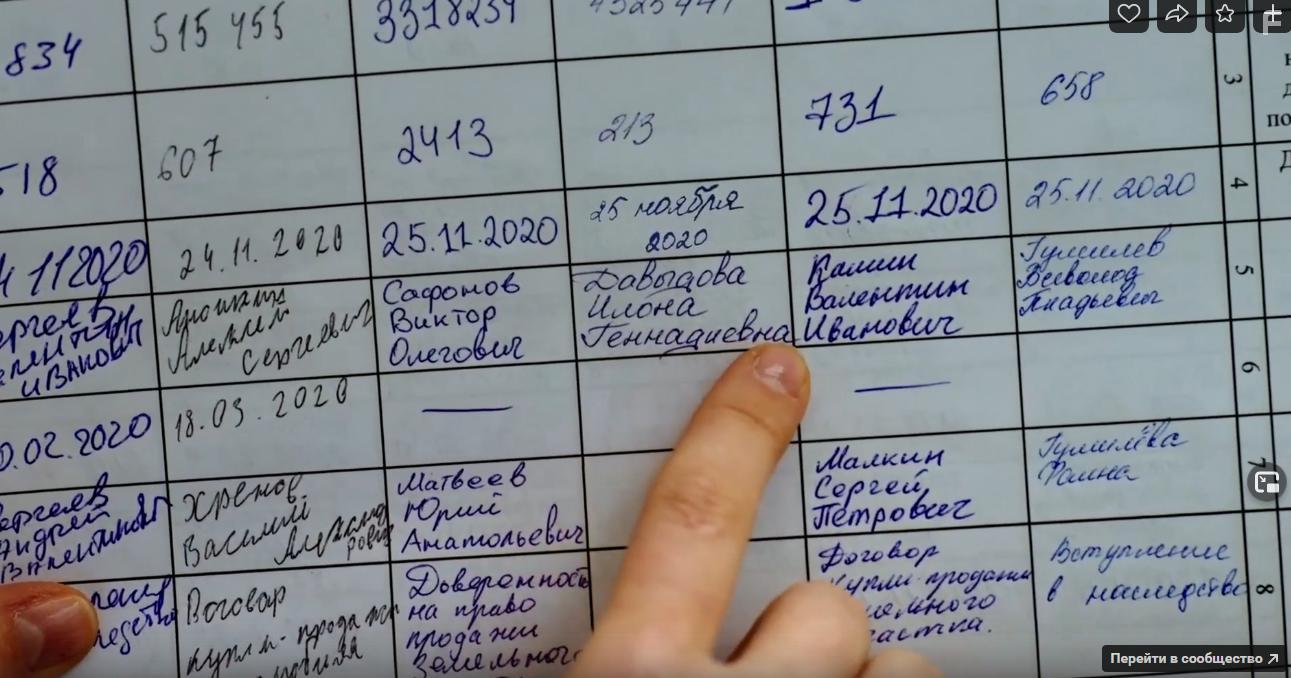 834
515 455
3318234
518
607
2413
213
731
658
3
4
5
6
7
8
4 11 2020
24.11.2020
25.11.2020
25 ноября
2020
25.11.2020
25.11.2020
Алексей
Сергеевич
Сафонов
Виктор
Олегович
Давыдова
Илона
Геннадиевна
Валентин
Иванович
Гумилев
Всеволод
0.02.2020
18.03.2020
—
—
Хренов
Василий
Александ
рович
Матвеев
Юрий
Анатольевич
Малкин
Сергей
Петрович
Гумилёва
Договор
купли-продажи
Доверенность
на право
продажи
земельного
Договор
купли-продажи
земельного
участка.
Вступление
в наследство
по
Перейти в сообщество